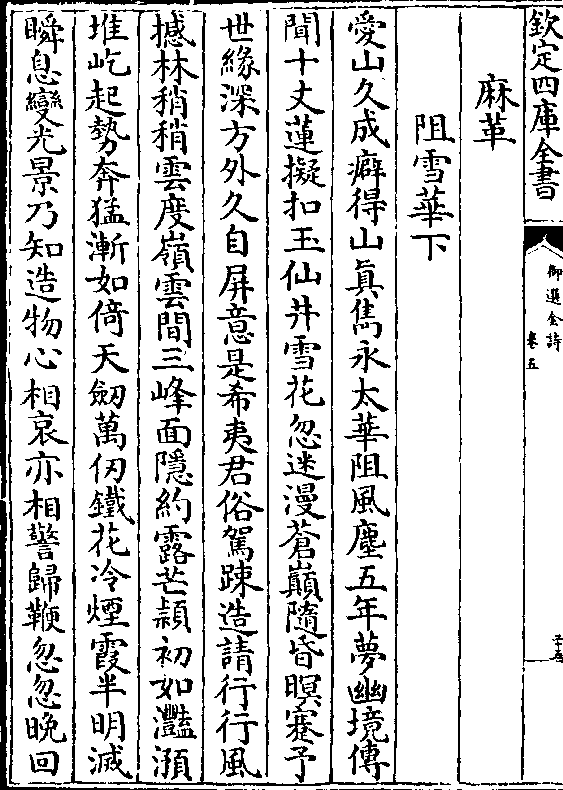 欽定四庫全書
御選金詩
卷五
麻革
阻雪華下
愛山久成癖得山真雋永太華阻風塵五年夢幽境傳
聞十丈蓮擬扣玉仙井雪花忽迷漫蒼巔隨昏暝蹇予
世緣深方外久自屏意是希夷君俗駕踈造請行行風
撼林稍稍雲度嶺雲間三峰面隱約露芒穎初如灩澦
堆屹起勢奔猛漸如倚天劒萬仞鐵花冷煙霞半明滅
瞬息變光景乃知造物心相哀亦相警歸鞭忽忽晚回